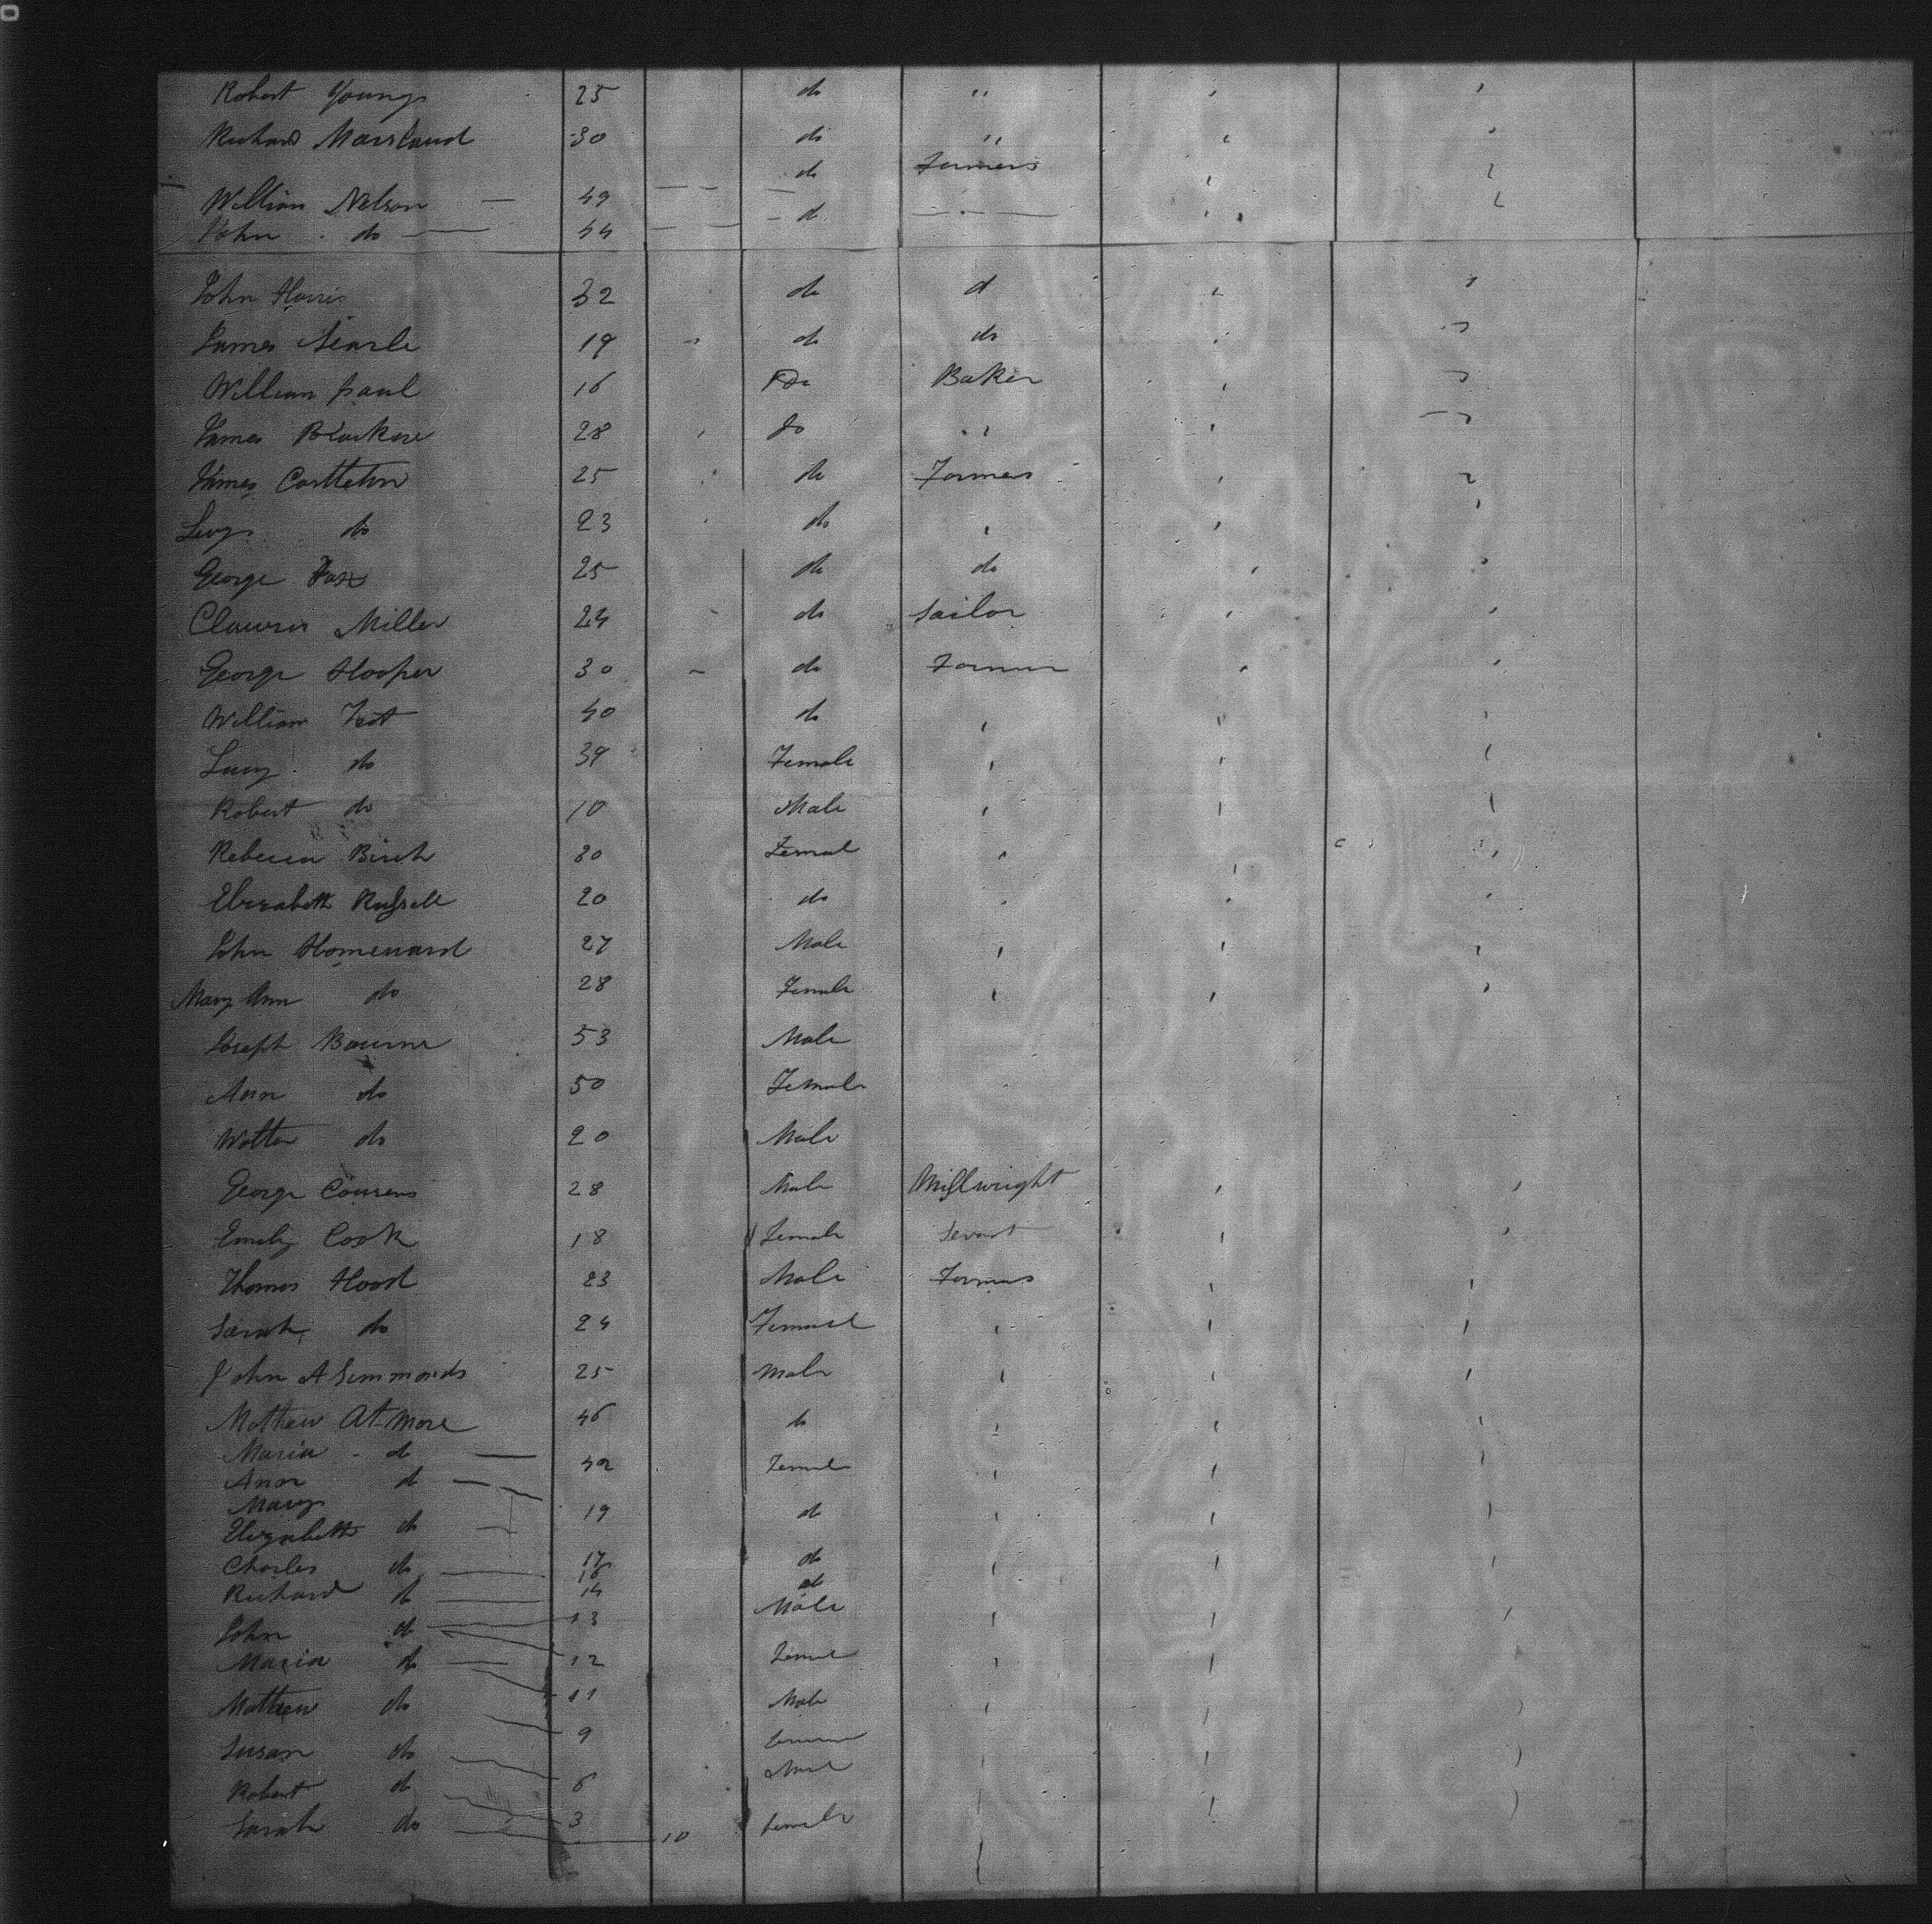 Robert Young 25 do "
Richard 30 do "
do Farmers
William Nelson — 49
John do — 44 do
John Harris 32 do d
James Searle 19 do do
William Paul 16 Do Baker
James 28 Do "
James Cartleton 25 do Farmers
Levy do 23 do
George Fox 25 do do
Miller 24 do Sailor
George Hooper 30 do Farmer
William 40 do
Lucy do 39 Female
Robert do 10 Male
Rebecca Birch 20 Femal
Elizabeth Russell 20 do
John Homeward 27 Male
Mary Ann do 28 Female
Joseph Bourne 53 Male
Ann do 50 Female
Walter do 20 Male
George Cousens 28 Male Millwright
Emily Cook 18 Female Servant
Thomas Hood 23 Male Farmers
Sarah do 24 Female
John A Simmonds 25 Male
Mathew At-more 46 do
Maria do — 42 Female
Ann do —
Mary
Elizabeth do — 19 do
Charles do — 17 do
Richard do — 14 Male
John do — 13
Maria do — 12 Female
Mathew do 11 Male
Susan do — 9
Robert do 6
Sarah do — 3 10 Female